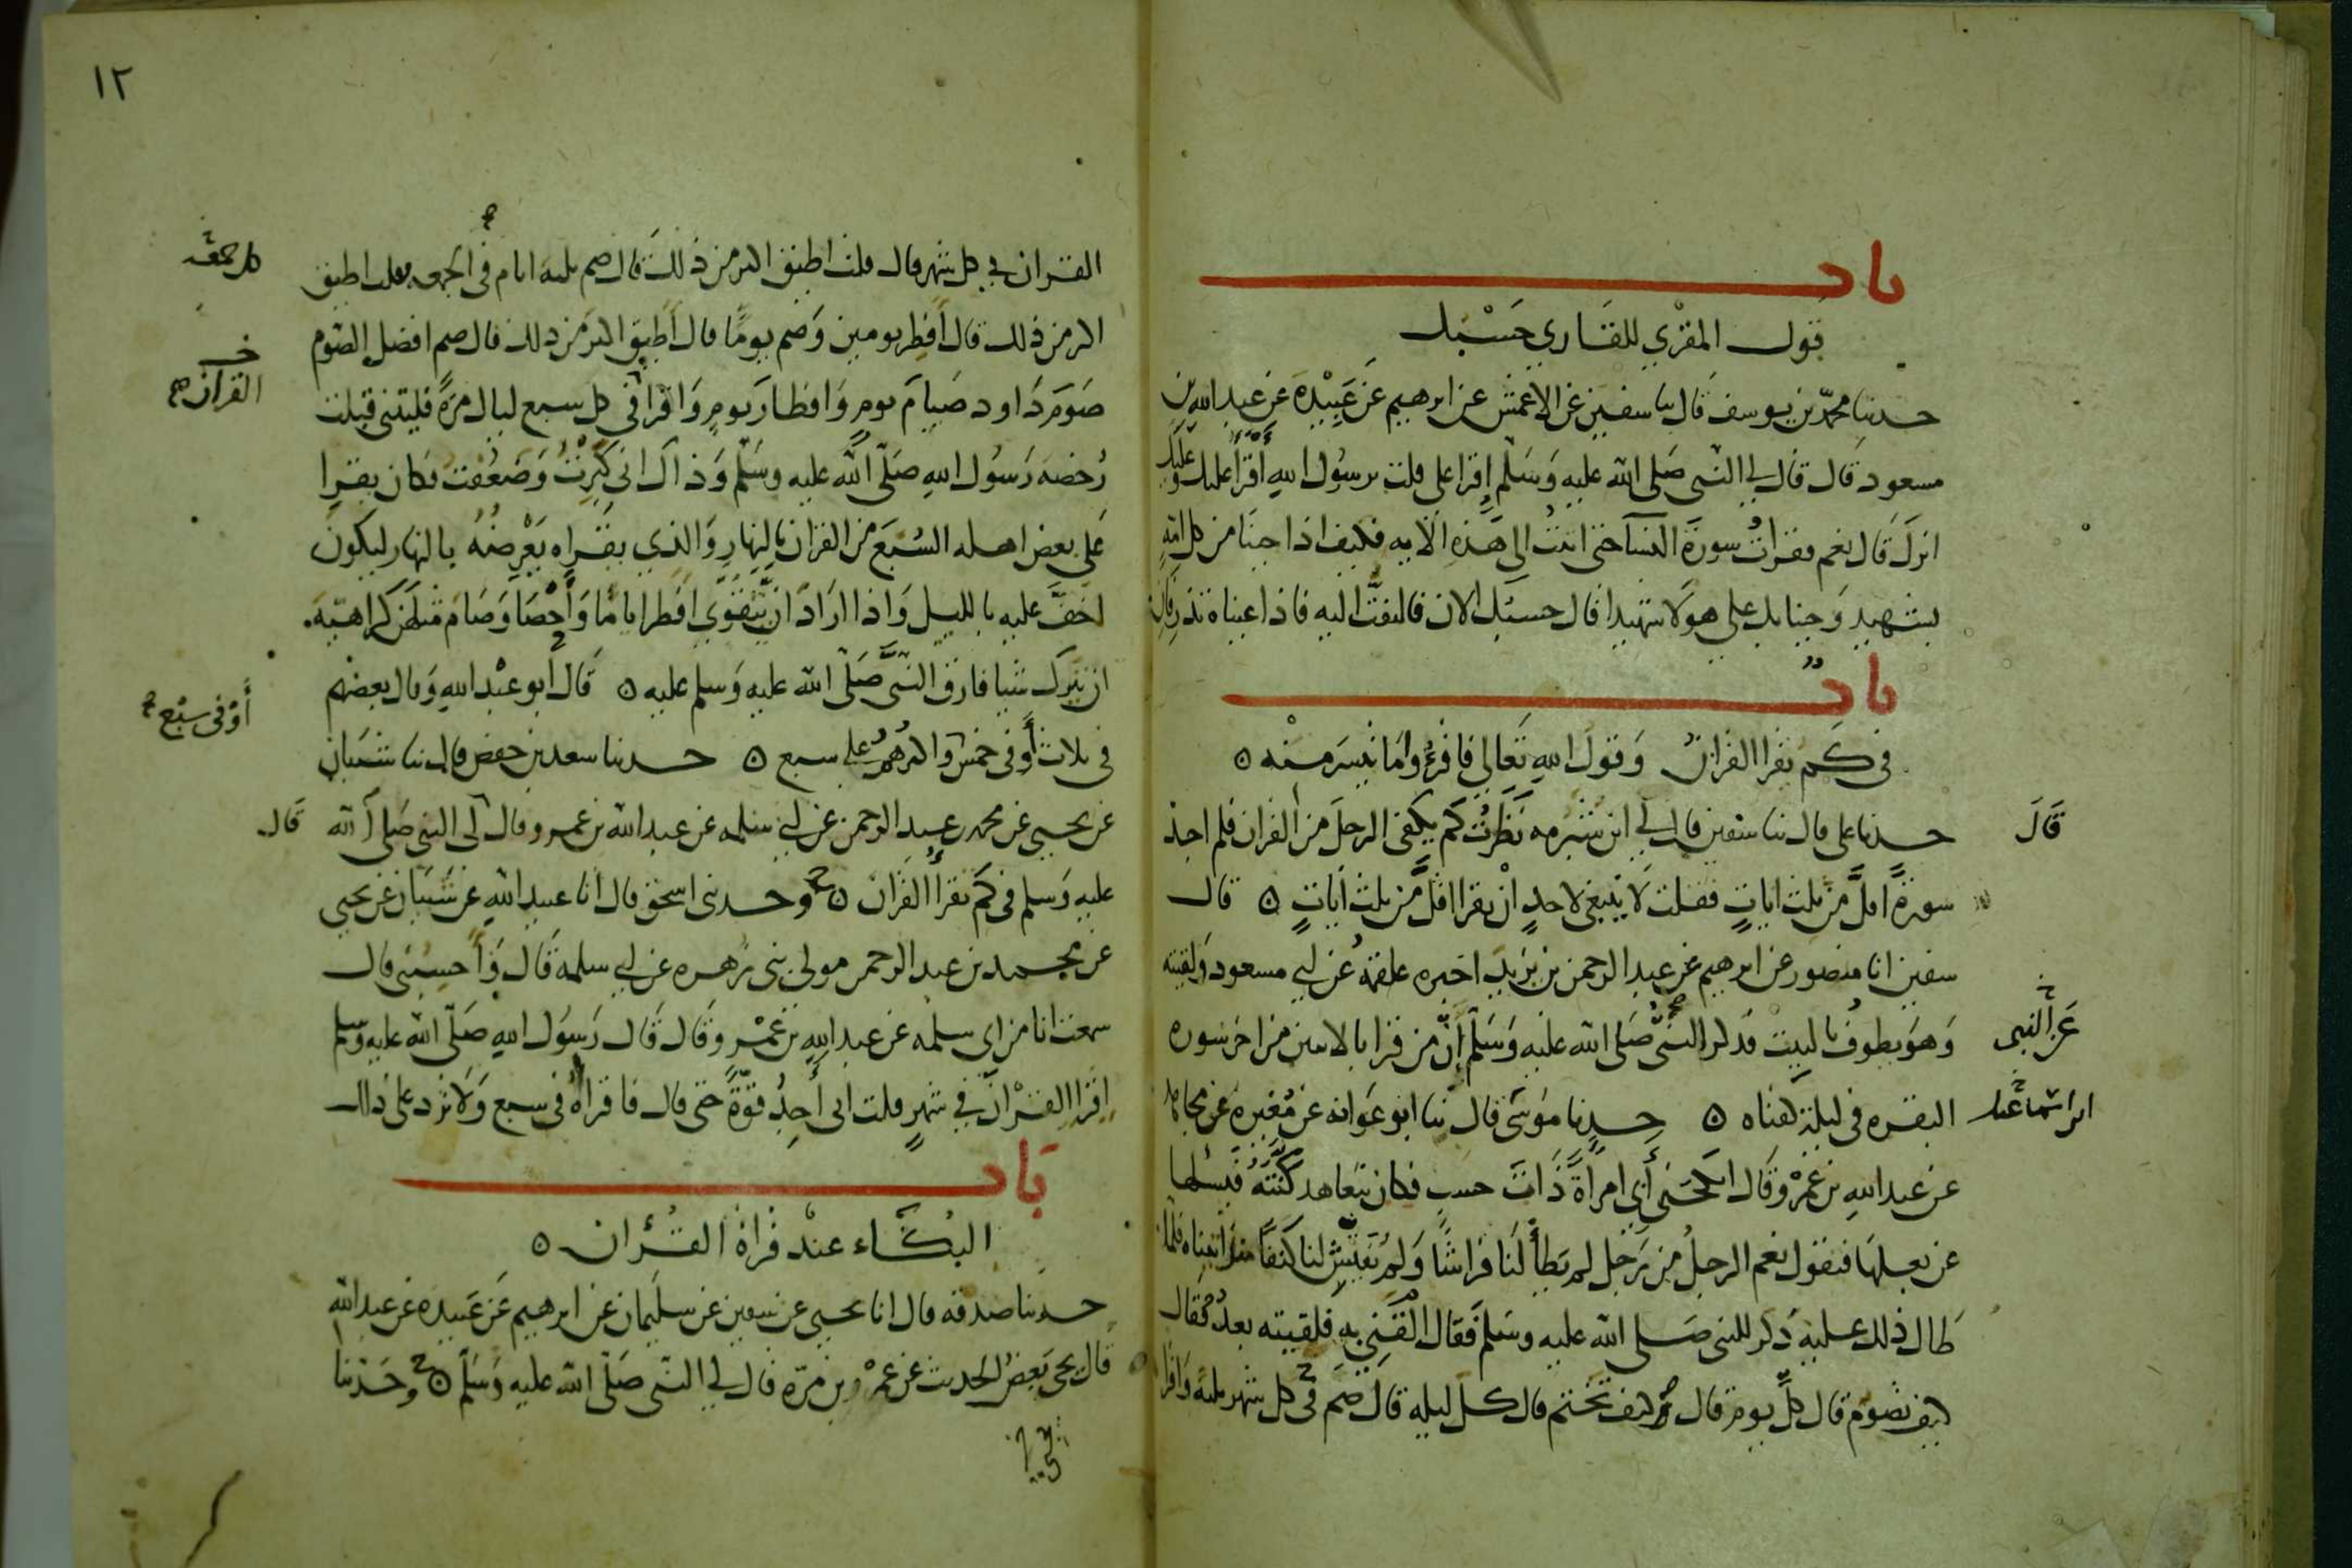 باب
قول المقري للقاري حسبك
حدثنا محمد بن يوسف قال ثنا سفين عن الاعمش عن ابرهيم عن عبيدة عن عبد الله بن
مسعود قال قال لي النبي صلى الله عليه وسلم اقرا علي قلت يرسول الله أقرأ عليك وعليك
انزل قال نعم فقرات سورة النسا حتى اتيت الى هذه الايه فكيف اذا جينا من كل امة
بشهيد وجينا بك على هولا شهيدا قال حسبك الان فالتفت اليه فاذا عيناه تذرفان
باب
في كم يقرا القران وقول الله تعالى فاقرؤوا ما تيسر منه ه
قال
حدثنا علي قال ثنا سفين قال لي ابن شبرمه نظرت كم يكفي الرجل من القران فلم اجد
سورة اقل من ثلث ايات فقلت لا ينبغي لاحد ان يقرا اقل من ثلث آيات ه قال
سفين انا منصور عن ابرهيم عن عبد الرحمن بن يزيد اخبره علقمة عن ابي مسعود ولقيته
وهو يطوف بالبيت فذكر النبي صلى الله عليه وسلم أن من قرا بالايتين من اخر سوره
عن النبي
البقره في ليلة كفتاه ه حدثنا موسى قال ثنا ابو عوانه عن مغيرة عن مجاهد
عن عبد الله بن عمرو قال انكحني أبي امرأة ذات حسب فكان يتعاهد كنته فيسلها
عن بعلها فتقول نعم الرجل من رجل لم يطأ لنا فراشا ولم يفتش لنا كنفا منذ اتيناه فلما
طال ذلك عليه ذكر للنبي صلى الله عليه وسلم فقال القني به فلقيته بعد فقال
كيف تصوم قال كل يوم قال وكيف تختم قال كل ليله قال صم في كل شهر ثلثه واقرا
١٢
القران في كل شهر قال قلت اطيق اكثر من ذلك قال صم ثلثه ايام في الجمعه قلت اطيق
كل جمعة
اكثر من ذلك قال أفطر يومين وصم يوما قال أطيق اكثر من ذلك قال صم افضل الصوم
صوم داود صيام يوم وافطار يوم واقرا في كل سبع ليال مرة فليتني قبلت
القران
رخصه رسول الله صلى الله عليه وسلم وذاك اني كبرت وضعفت فكان يقرا
على بعض اهله السبع من القران بالنهار والذي يقراه يعرضه بالنهار ليكون
اخف عليه بالليل واذا اراد ان يتقوى افطر اياما وأحصا وصام مثلهن كراهية
ان يترك شيا فارق النبي صلى الله عليه وسلم عليه ه قال أبو عبد الله وقال بعضهم
في ثلاث أو في خمس واكثرهم على سبع ه حدثنا سعد بن حفص قال ثنا شيبان
أو في سبع
عن يحيى عن محمد بن عبد الرحمن عن ابي سلمه عن عبد الله بن عمرو قال لي النبي صلى الله
قال
عليه وسلم في كم تقرأ القران ه ح وحدثني اسحق قال انا عبيد الله عن شيبان عن يحيى
عن محمد بن عبد الرحمن مولى بني زهره عن ابي سلمه قال وأحسبني قال
سمعت انا من ابي سلمه عن عبد الله بن عمرو قال قال رسول الله صلى الله عليه وسلم
اقرا القران في شهر قلت اني أجد قوة حتى قال فاقراه في سبع ولا تزد على ذلك
باب
البكاء عند قراة القرآن ه
حدثنا صدقه قال انا يحيى عن سفين عن سليمان عن ابرهيم عن عبيده عن عبد الله
قال يحيى بعض الحديث عن عمرو بن مرة قال لي النبي صلى الله عليه وسلم ه ح وحدثنا